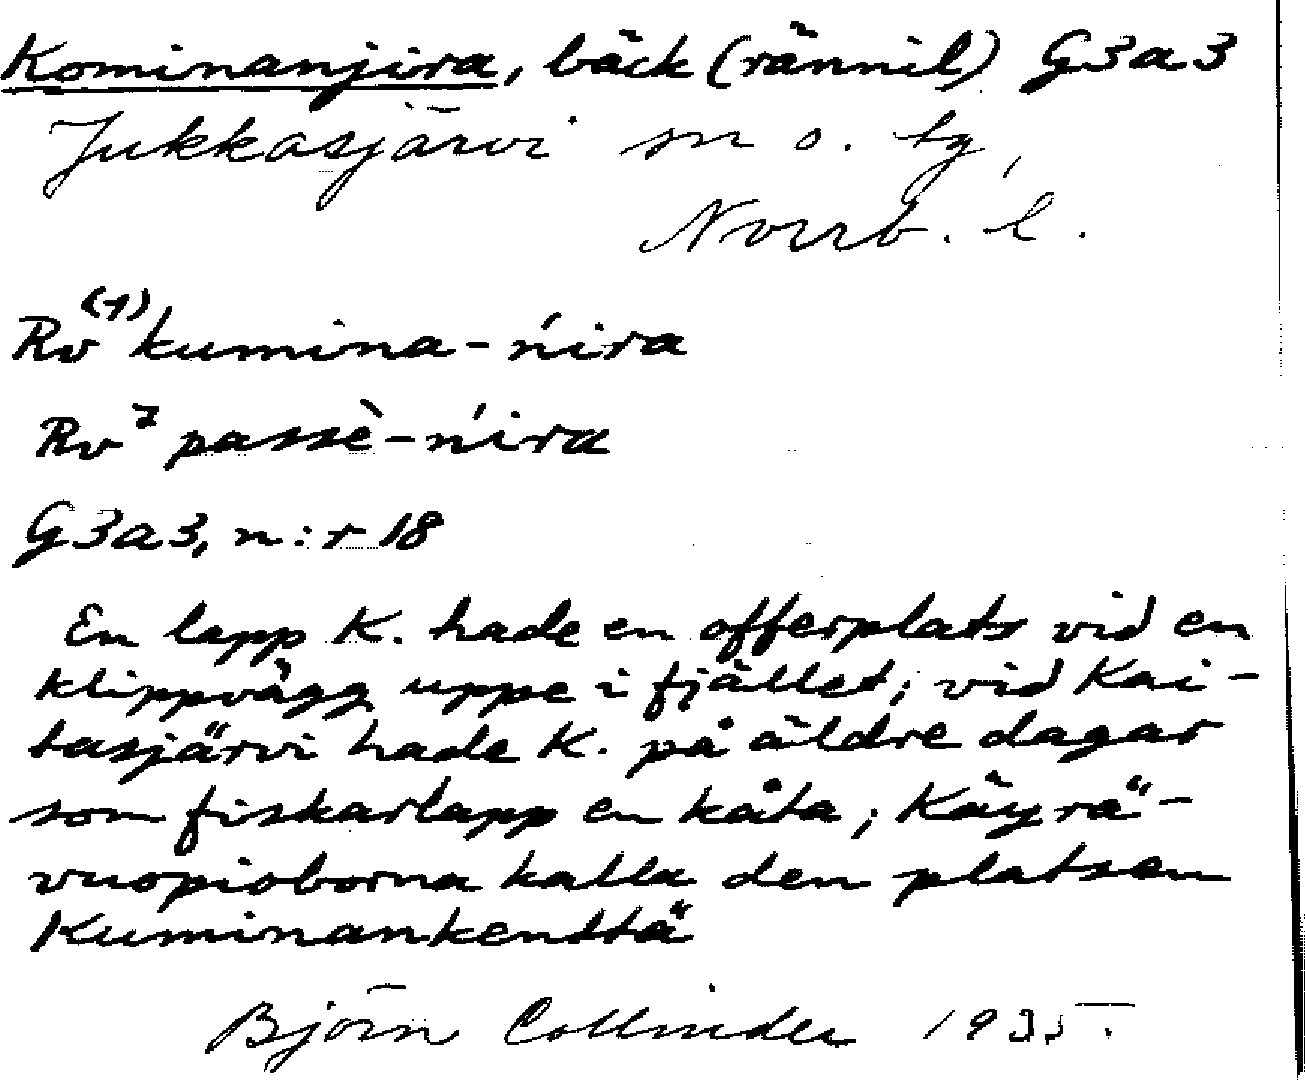 Kominanjira, bäck (rännil) G3a3
Jukkasjärvi sn o. tg,
Norrb. l.
Rv(7) kumina-ńira
Rv7 passè-ńira
G3a3, n:r 18
En lapp K. hade en offerplats vid en
klippvägg uppe i fjället; vid Kai-
tasjärvi hade K. på äldre dagar
som fiskarlapp en kåta; Käyrä-
vuopioborna kalla den platsen
Kuminankenttä
Björn Collinder 1935.